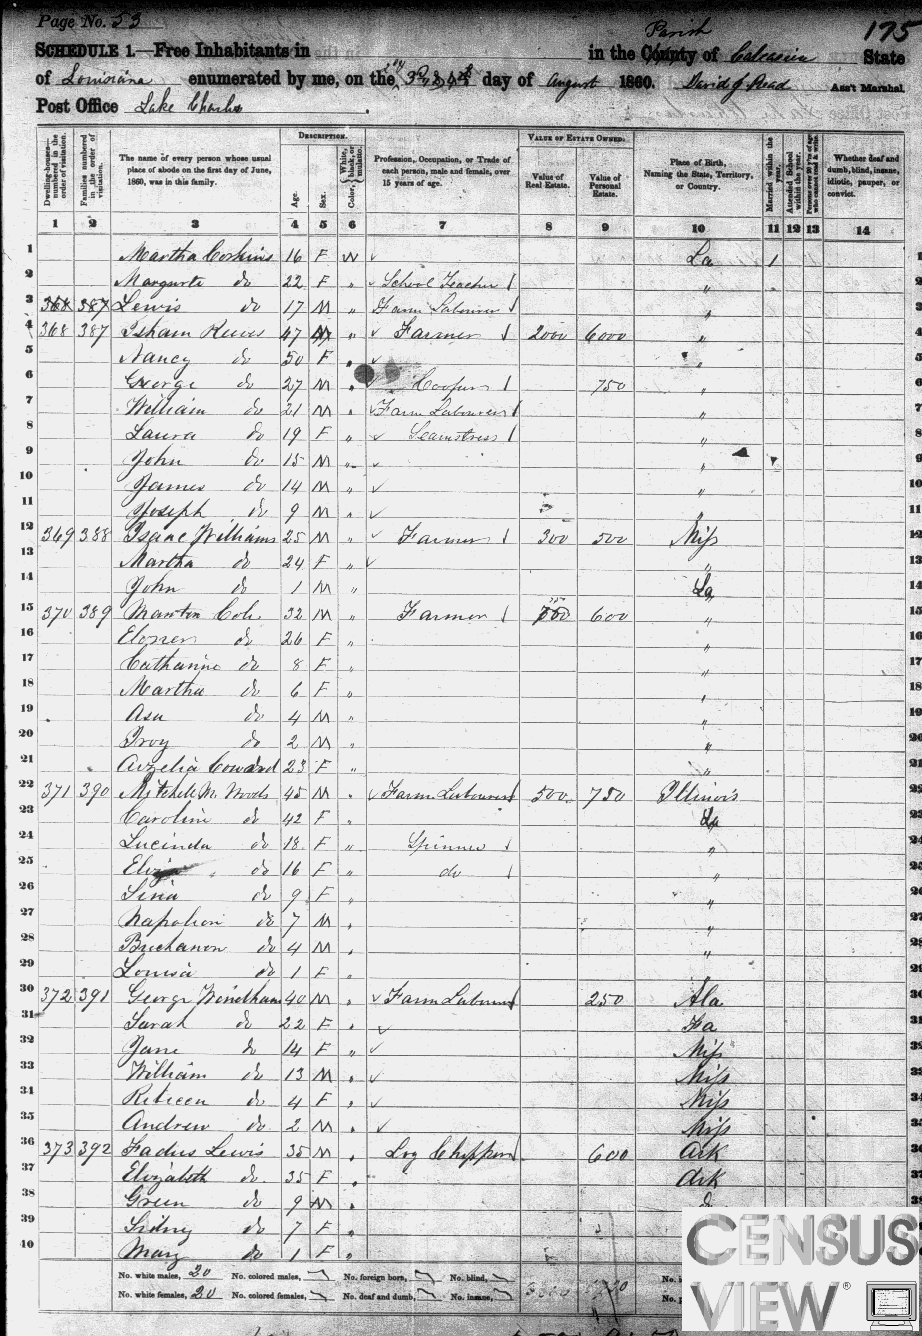 Page No. 53
175
SCHEDULE 1.—Free Inhabitants in in the County Parish of Calcasieu State
of Louisiana enumerated by me, on the day of August 1860. David J. Read Ass't Marshal.
Post Office Lake Charles
Dwelling-houses—numbered in the order of visitation.
Families numbered in the order of visitation.
The name of every person whose usual place of abode on the first day of June, 1860, was in this family.
DESCRIPTION.
Age.
Sex.
Color, White, black, or mulatto.
Profession, Occupation, or Trade of each person, male and female, over 15 years of age.
VALUE OF ESTATE OWNED.
Value of Real Estate.
Value of Personal Estate.
Place of Birth, Naming the State, Territory, or Country.
Married within the year.
Attended School within the year.
Persons over 20 y'rs of age who cannot read & write.
Whether deaf and dumb, blind, insane, idiotic, pauper, or convict.
1 2 3 4 5 6 7 8 9 10 11 12 13 14
1 Martha 16 F W La 1 1
2 Margarte do 22 F " School Teacher " 2
3 368 387 Lewis do 17 M " Farm Labourer " 3
4 368 387 Isham Reeves 47 M " Farmer 2000 6000 " 4
5 Nancy do 50 F " 5
6 George do 27 M " Cooper 750 " 6
7 William do 21 M " Farm Labourer " 7
8 Laura do 19 F " Seamstress " 8
9 John do 15 M " " 9
10 James do 14 M " " 10
11 Joseph do 9 M " " 11
12 369 388 Isaac Williams 25 M " Farmer 300 500 Miss 12
13 Martha do 24 F " " 13
14 John do 1 M " La 14
15 370 389 Cole 32 M " Farmer 600 " 15
16 do 26 F " " 16
17 Catharine do 8 F " " 17
18 Martha do 6 F " " 18
19 Asa do 4 M " " 19
20 Troy do 2 M " " 20
21 Coward 23 F " " 21
22 371 390 Mitchell M. Woods 45 M " Farm Labourer 500 750 Illinois 22
23 Caroline do 42 F " La 23
24 Lucinda do 18 F " Spinner " 24
25 Eliza do 16 F " do " 25
26 do 9 F " " 26
27 Napoleon do 7 M " " 27
28 Buchanon do 4 M " " 28
29 Louisa do 1 F " 29
30 372 391 George Windham 40 M " Farm Labourer 250 Ala 30
31 Sarah do 22 F " 31
32 Jane do 14 F " Miss 32
33 William do 13 M " Miss 33
34 Rebecca do 4 F " Miss 34
35 Andrew do 2 M " Miss 35
36 373 392 Lewis 35 M " Log Chopper 600 Ark 36
37 Elizabeth do 35 F " Ark 37
38 Green do 9 M " 38
39 Sidney do 7 F "
40 Mary do 1 F "
No. white males, 20 No. colored males, No. foreign born, No. blind,
No. white females, 20 No. colored females, No. deaf and dumb, No. insane,
CENSUS
VIEW®